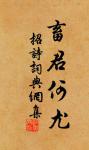 畜君何尤
招詩詞典網集